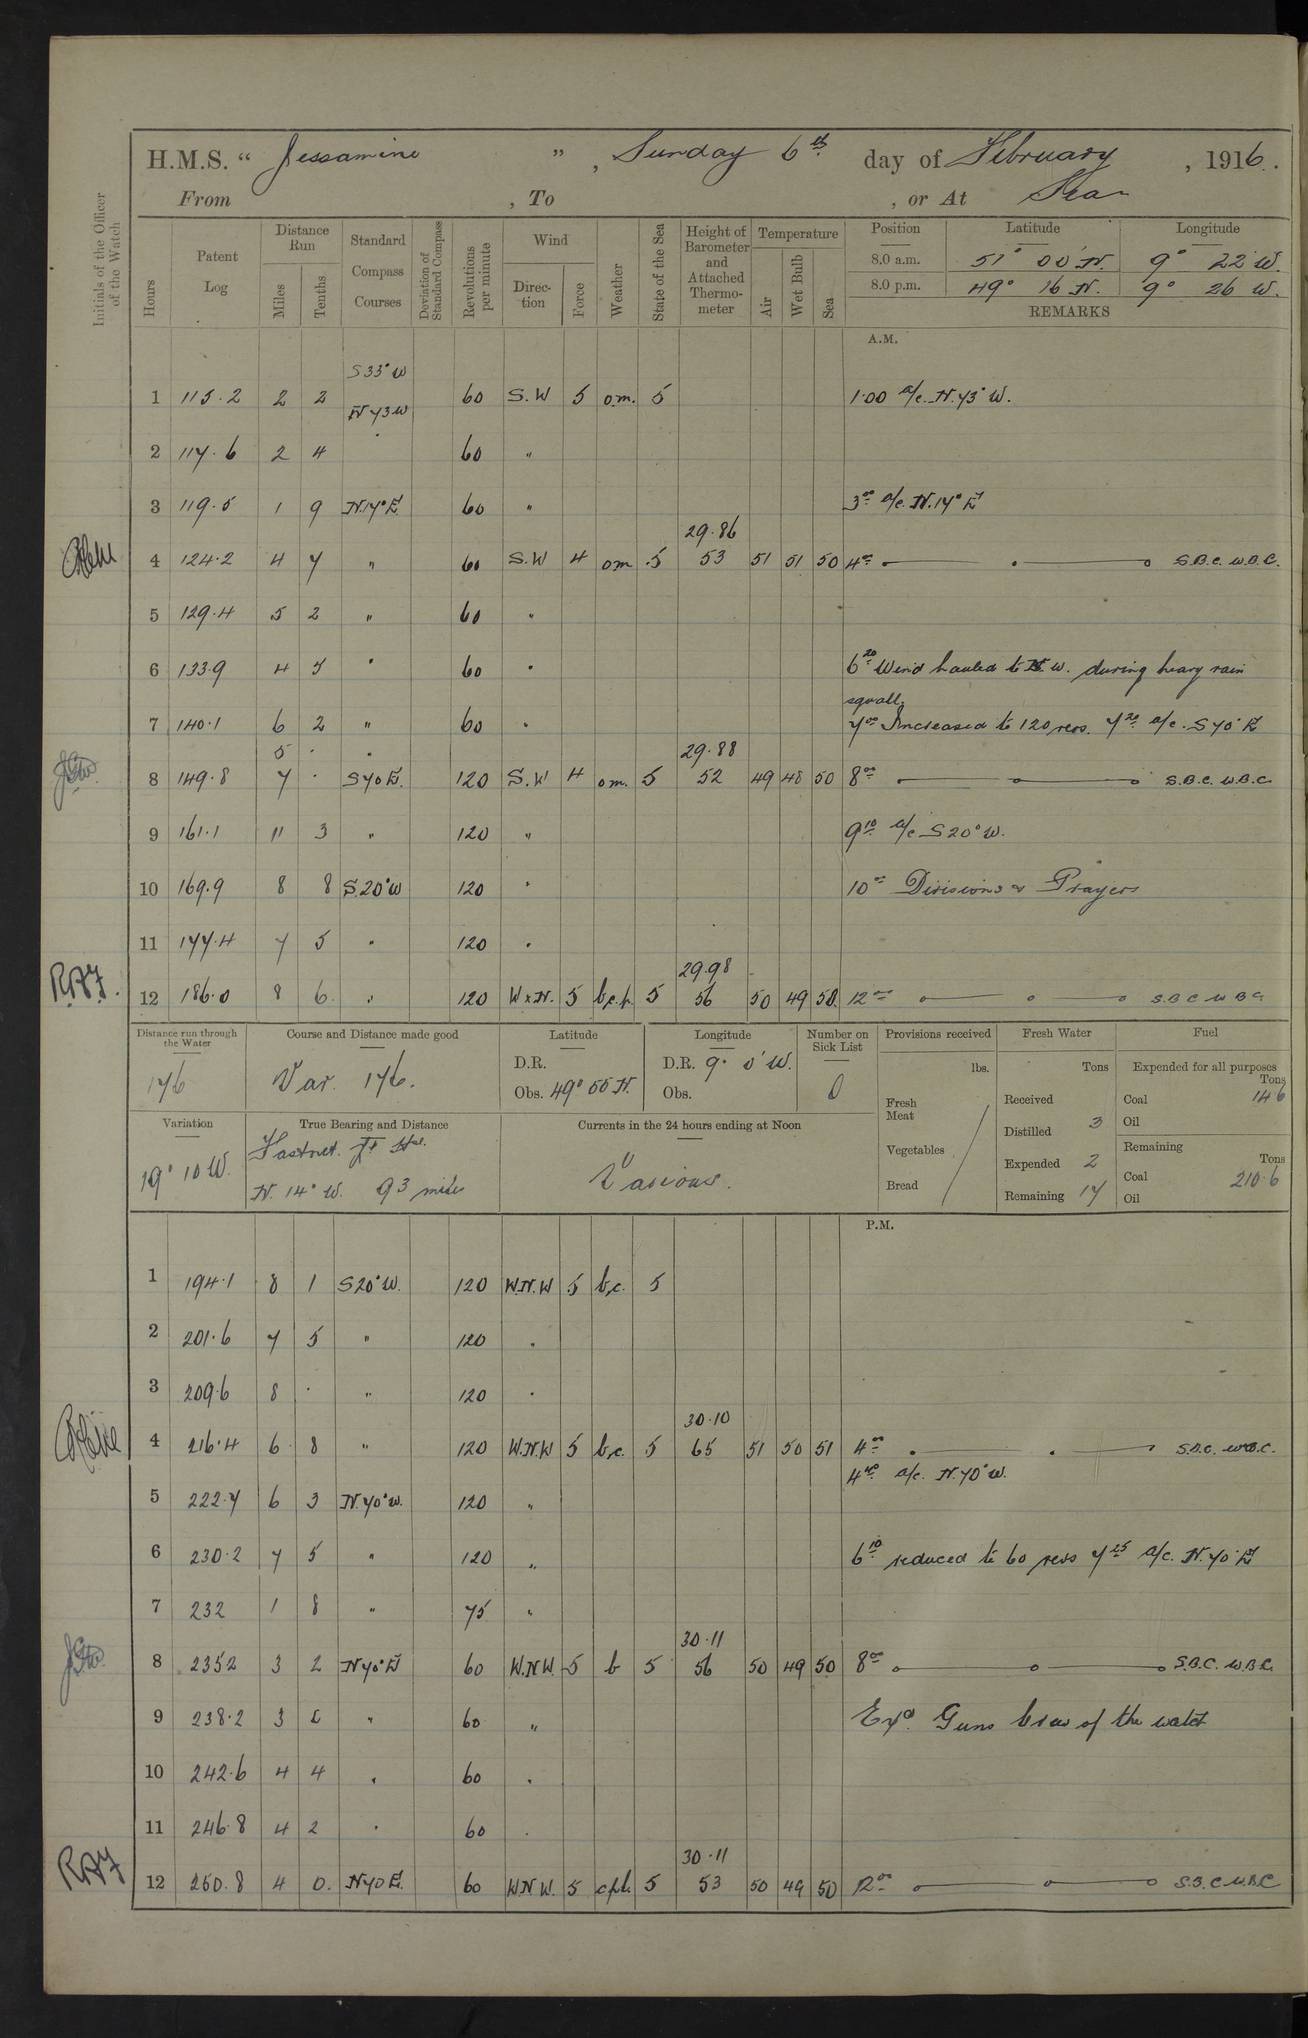 H.M.S. “ Jessamine ” , Sunday 6th day of February , 1916 .
From , To , or At Sea
Initials of the Officer of the Watch
Hours
Patent Log
Distance Run
Miles
Tenths
Standard Compass Courses
Deviation of Standard Compass
Revolutions per minute
Wind
Direction
Force
Weather
State of the Sea
Height of Barometer and Attached Thermometer
Temperature
Air
Wet Bulb
Sea
Position Latitude Longitude
8.0 a.m. 51° 00' N. 9° 22' W.
8.0 p.m. 49° 16 N. 9° 26 W.
REMARKS
A.M.
S33°W
1 115.2 2 2 N 73 W 60 S.W 5 o.m. 5 1.00 a/c. N.73° W.
2 117.6 2 4 60 "
3 119.5 1 9 N.17°E 60 " 3 00 a/c. N.17° E
29.86
4 124.2 4 7 " 60 S.W 4 om 5 53 51 51 50 4 00 S.B.C. W.B.C.
5 129.4 5 2 " 60 "
6 133.9 4 5 " 60 " 6 20 Wind hauled to N.W. during heavy rain
squall.
7 140.1 6 2 " 60 " 7 00 Increased to 120 revs. 7 20 a/c. S70°E
5 . " 29.88
8 149.8 7 . S70E. 120 S.W 4 om. 5 52 49 48 50 8 00 S.B.C. W.B.C.
9 161.1 11 3 " 120 " 9 10 a/c S20°W.
10 169.9 8 8 S.20°W 120 " 10 00 Divisions & Prayers
11 177.4 7 5 " 120 "
29.98
R.A.F. 12 186.0 8 6 " 120 WxN. 5 b.c.p. 5 56 50 49 50. 12 00 S.B.C W B C
Distance run through the Water
176
Course and Distance made good
Var. 176.
Latitude
D.R.
Obs. 49° 55 N.
Longitude
D.R. 9° 0' W.
Obs.
Number on Sick List
0
Provisions received
lbs.
Fresh Meat
Vegetables
Bread
Fresh Water
Tons
Received
Distilled 3
Expended 2
Remaining 17
Fuel
Expended for all purposes
Tons
Coal 14 6
Oil
Remaining
Tons
Coal 210.6
Oil
Variation
19° 10 W.
True Bearing and Distance
Fastnet Lt Hse.
N. 14° W. 93 miles
Currents in the 24 hours ending at Noon
Various.
P.M.
1 194.1 8 1 S20°W. 120 W.N.W 5 b.c. 5
2 201.6 7 5 " 120 "
3 209.6 8 . " 120 "
30.10
4 216.4 6 8 " 120 W.N.W 5 b.c. 5 65 51 50 51 4 00 S.B.C. W.B.C.
4 40 a/c. N.70°W.
5 222.7 6 3 N.70°W. 120 "
6 230.2 7 5 " 120 " 6 10 reduced to 60 revs 7 25 a/c. N.70°E
7 232 1 8 " 75 "
30.11
8 235 2 3 2 N70°E 60 W.N.W. 5 b 5 56 50 49 50 8 00 S.B.C. W.B.C.
9 238.2 3 0 " 60 " Exd. Guns Crew of the watch
10 242.6 4 4 " 60 "
11 246.8 4 2 " 60 "
30.11
RAF 12 250.8 4 0. N70E. 60 W.N.W. 5 c.p.l. 5 53 50 49 50 12 00 S.B.C W.B.C